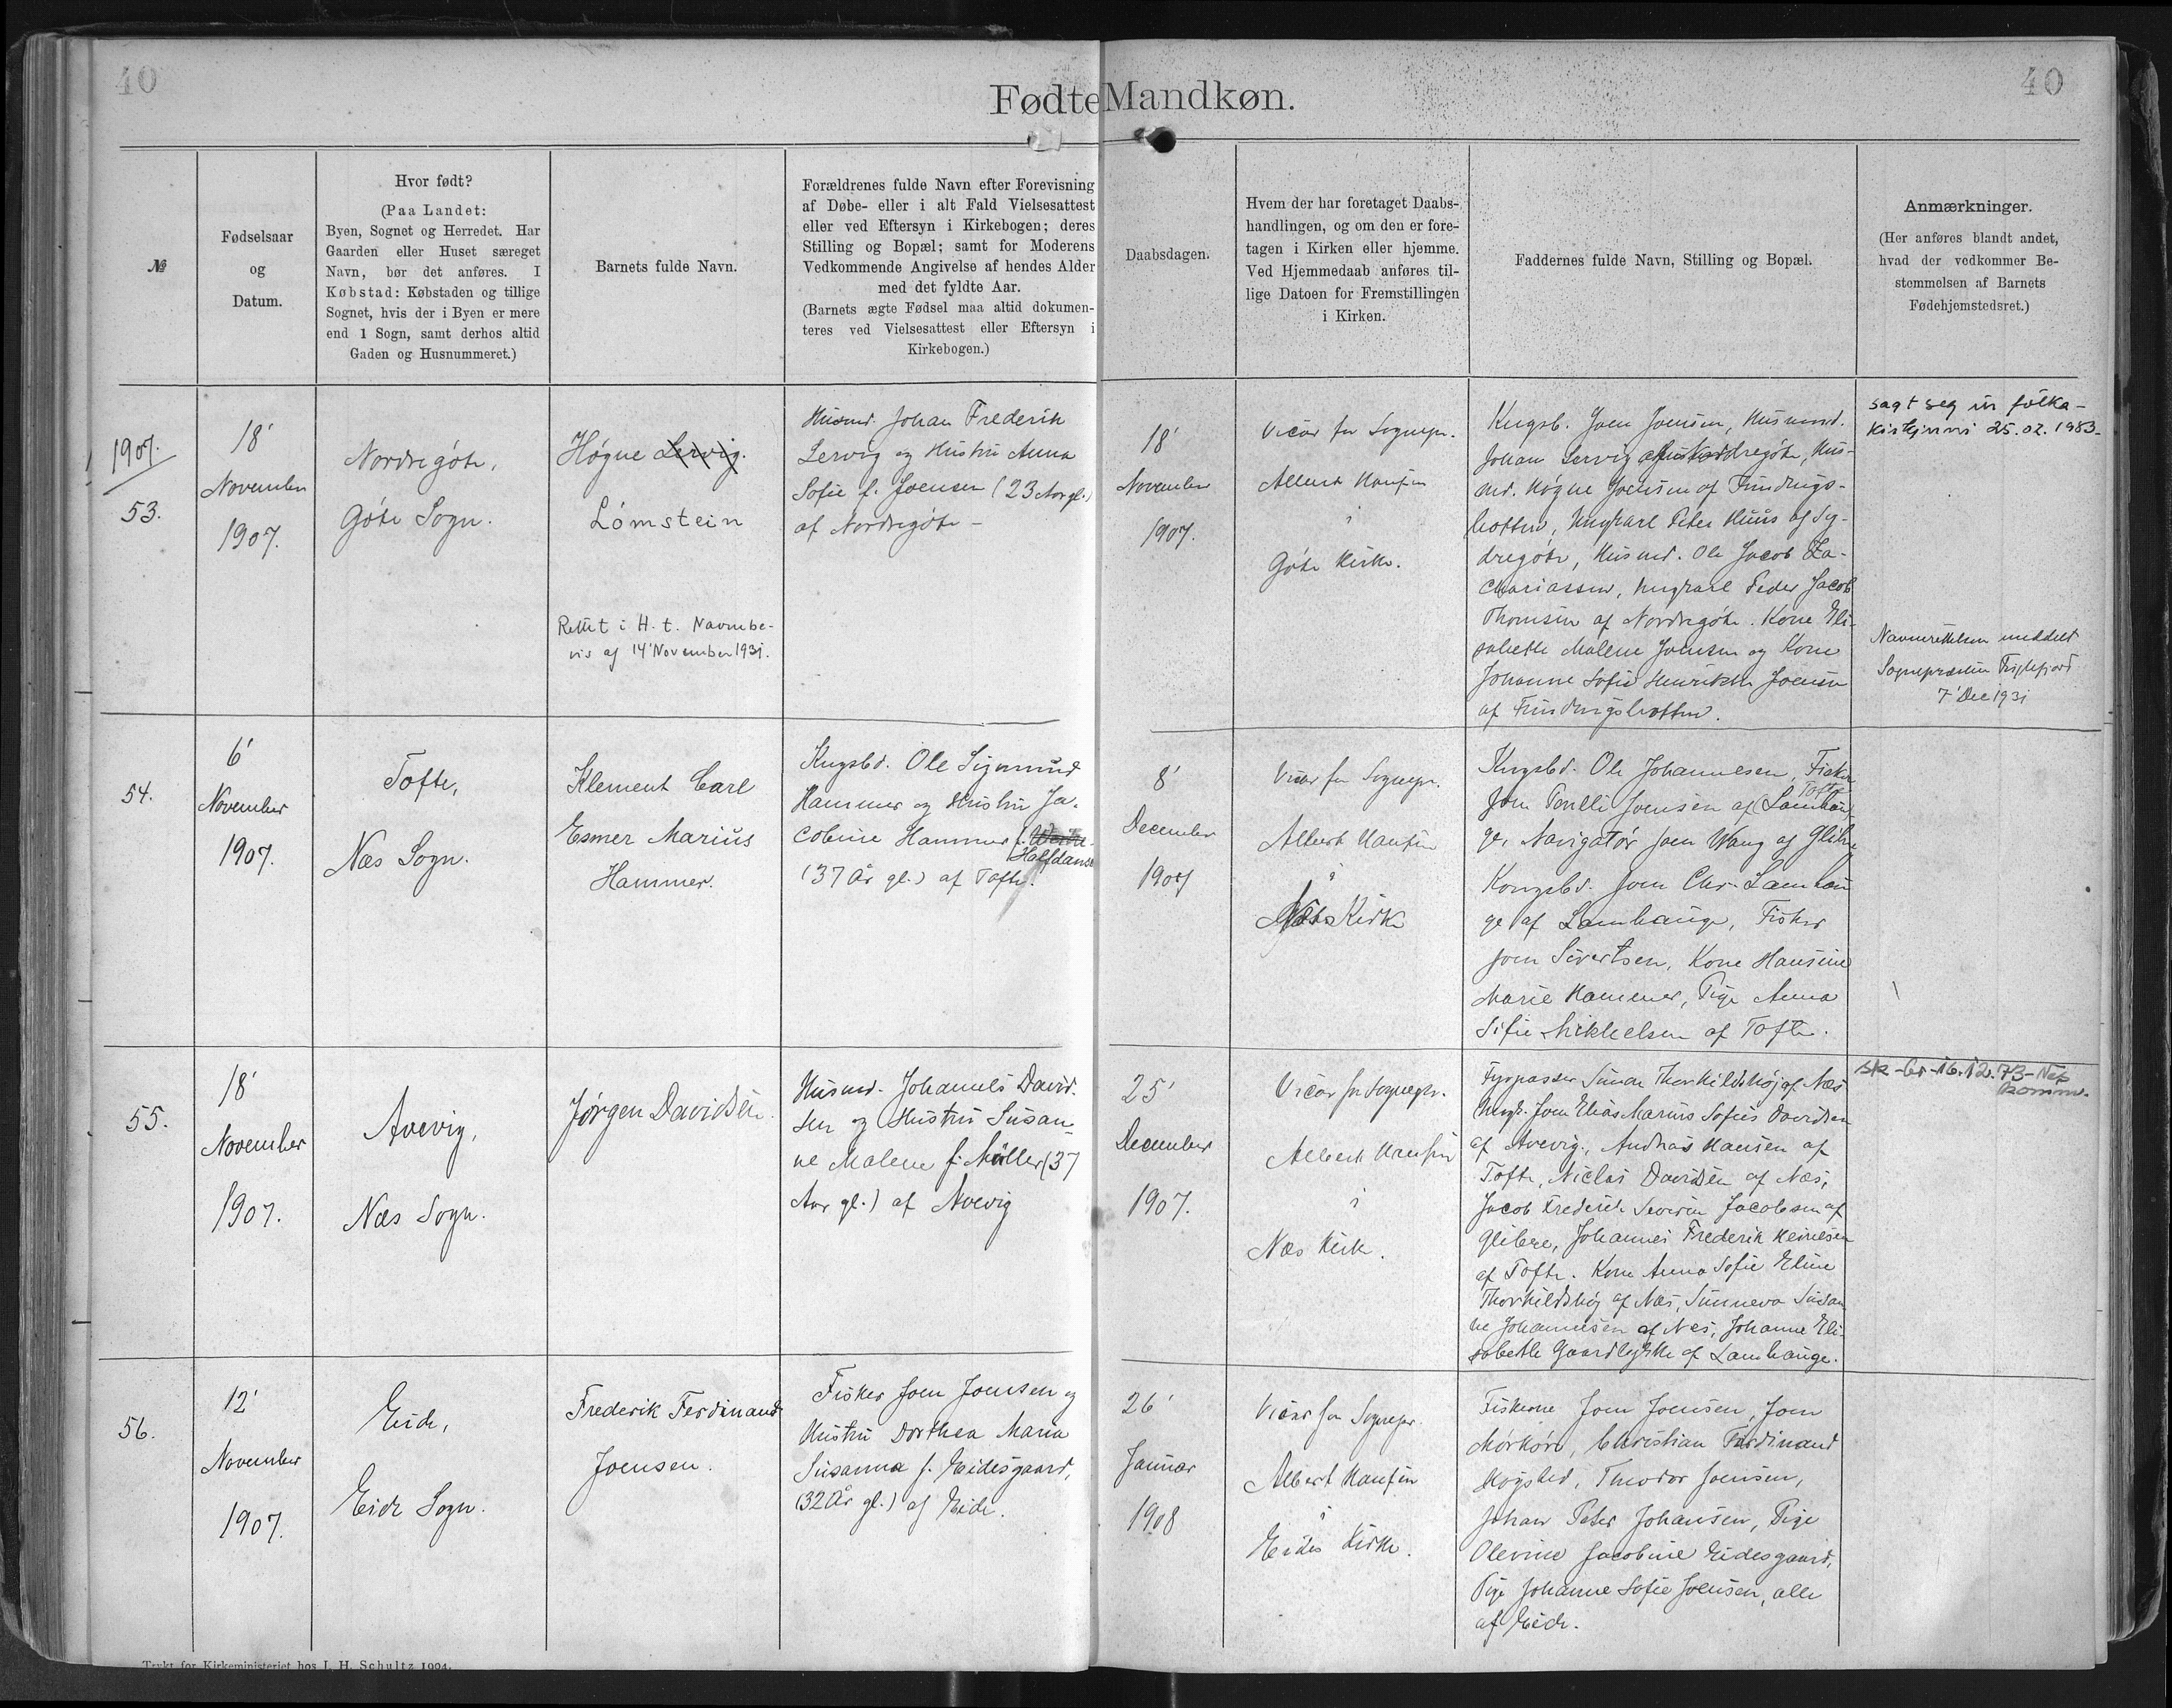 40
40
Fødte Mandkøn.
№
Fødselsaar
og
Datum.
Hvor født?
(Paa Landet:
Byen, Sognet og Herredet. Har
Gaarden eller Huset særeget
Navn, bør det anføres. I
Købstad: Købstaden og tillige
Sognet, hvis der i Byen er mere
end 1 Sogn, samt derhos altid
Gaden og Husnummeret.)
Barnets fulde Navn.
Forældrenes fulde Navn efter Forevisning
af Døbe- eller i alt Fald Vielsesattest
eller ved Eftersyn i Kirkebogen; deres
Stilling og Bopæl; samt for Moderens
Vedkommende Angivelse af hendes Alder
med det fyldte Aar.
(Barnets ægte Fødsel maa altid dokumen-
teres ved Vielsesattest eller Eftersyn i
Kirkebogen.)
Daabsdagen.
Hvem der har foretaget Daabs-
handlingen, og om den er fore-
tagen i Kirken eller hjemme.
Ved Hjemmedaab anføres til-
lige Datoen for Fremstillingen
i Kirken.
Faddernes fulde Navn, Stilling og Bopæl.
Anmærkninger.
(Her anføres blandt andet,
hvad der vedkommer Be-
stemmelsen af Barnets
Fødehjemstedsret.)
1907.
53.
18'
November
1907.
Nordregöte,
Göte Sogn.
Høgne Lervig.
Lómstein
Rettet i H. t. Navnebe-
vis af 14' November 1931.
Husmd. Johan Frederik
Lervig og Hustru Anna
Sofie f. Joensen (23 Aar gl.)
af Nordregöte –
18'
November
1907.
Vicar for Sognepr.
Albert Hansen
i
Göte Kirke.
Kngsb. Joen Joensen, Husmd.
Johan Lervig af Nordregöte, Hus-
md. Högne Joensen af Fundings-
botten, Ungkarl Peter Huus af Sy-
dregöte, Husmd. Ole Jacob Za-
chariassen, Ungkarl Peder Jacob
Thomsen af Nordregöte. Kone Eli-
sabeth Malene Joensen og Kone
Johanne Sofie Henrikke Joensen
af Fundingsbotten.
sagt seg úr fólka-
kirkjunni 25.02.1983-
Navnerettelsen meddelt
Sognepræsten Fuglefjord
7' Dec 1931
54.
6'
November
1907.
Tofte,
Næs Sogn.
Klement Carl
Esmer Marius
Hammer.
Kngsbd. Ole Sigmund
Hammer og Hustru Ja-
cobine Hammer f.
Halfdans
(37 År gl.) af Tofte.
8'
December
1907
Vicar for Sognepr.
Albert Hansen
i
Næs Kirke
Kngsbd. Ole Johannesen, Fisker
Tofte
Joen Poulli Joensen af Lamhau-
ge, Navigatör Joen Wang af Glibre,
Kongsbd. Joen Chr. Lamhau
ge af Lamhauge, Fisker
Joen Sivertsen, Kone Hansine
Marie Hammer, Pige Anna
Sofie Mikkelsen af Tofte.
55.
18'
November
1907.
Avevig,
Næs Sogn.
Jørgen Davidsen.
Husmd. Johannes David-
sen og Hustru Susan-
ne Malene f. Müller (37
Aar gl.) af Avevig
25'
December
1907.
Vicar for Sognepr.
Albert Hansen
i
Næs Kirke.
Fyrpasser Simon Thorkildshöj af Næs
Ungk. Joen Elias Marius Sofus Davidsen
af Avevig, Andreas Hansen af
Tofte, Niclas Davidsen af Næs,
Jacob Frederik Severin Jacobsen af
Glibre, Johannes Frederik Heinesen
af Tofte. Kone Anna Sofie Eline
Thorkildshöj af Næs, Sunneva Susan
ne Johannesen af Næs, Johanne Eli-
sabeth Gaardlykke af Lamhauge.
sk-br-16.12.73-Nes
komm.
56.
12'
November
1907.
Eide,
Eide Sogn.
Frederik Ferdinand
Joensen.
Fisker Joen Joensen og
Hustru Dorthea Maria
Susanna f. Eidesgaard,
(32 År gl.) af Eide.
26'
Januar
1908
Vicar for Sognepr.
Albert Hansen
i
Eides Kirke.
Fiskerne Joen Joensen, Joen
Mörköre, Christian Ferdinand
Högsted, Theodor Joensen,
Johan Peter Johansen, Pige
Olevine Jacobine Eidesgaard,
Pige Johanne Sofie Joensen, alle
af Eide.
Trykt for Kirkeministeriet hos J. H. Schultz 1904.